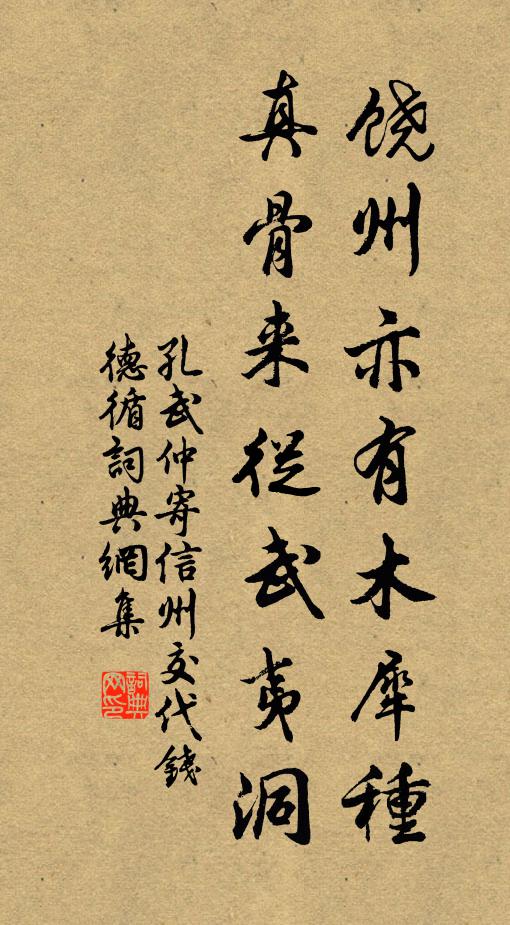 饶州亦有木犀種
真骨来從武夷洞
孔武仲寄信州交代錢
德循詞典網集
詞典網印